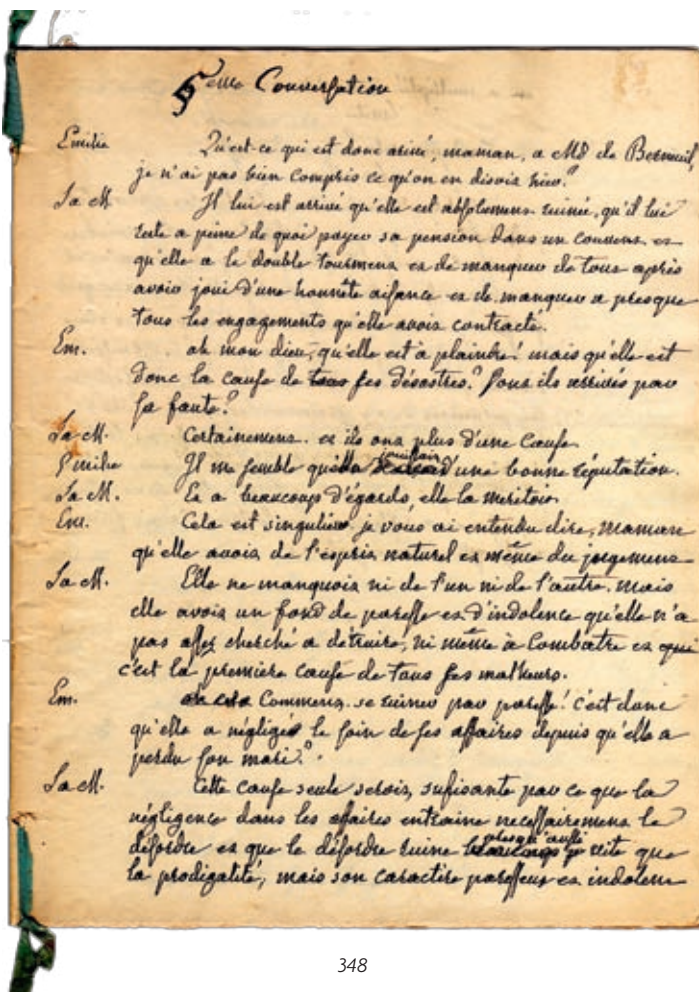 5eme Conversation
Emilie Qu'est-ce qui est donc arivé, maman, a Md de Berneuil,
je n'ai pas bien compris ce qu'on en disoit hier?
La M. Il lui est arrivé qu'elle est absolument ruinée, qu'il lui
reste a peine de quoi payer sa pension dans un couvent et
qu'elle a le double tourment et de manquer de tout après
avoir joui d'une honnête aisance et de manquer a presque
tous les engagements qu'elle avoit contracté.
Em. ah mon dieu, qu'elle est à plaindre! mais qu'elle est
donc la cause de tous ses désastres? Sont ils arrivés par
sa faute?
La M. Certainement. et ils ont plus d'une cause
Emilie Il me semble qu'elle jouissoit d'une bonne réputation.
La M. Et a beaucoup d'égards, elle la meritoit
Em. Cela est singulier. je vous ai entendu dire, maman
qu'elle avoit de l'esprit naturel et même du jugement
La M. Elle ne manquoit ni de l'un ni de l'autre. mais
elle avoit un fond de paresse et d'indolence qu'elle n'a
pas assez cherché a détruire, ni même à combatre et qui
c'est la premiere cause de tous ses malheurs.
Em. Comment. se ruiner par paresse! c'est donc
qu'elle a négligé le soin de ses affaires depuis qu'elle a
perdu son mari?
La M. Cette cause seule seroit sufisante par ce que la
négligence dans les affaires entraine necessairement le
désordre et que le désordre ruine presqu'aussi vite que
la prodigalité, mais son caractère paresseux et indolent
348